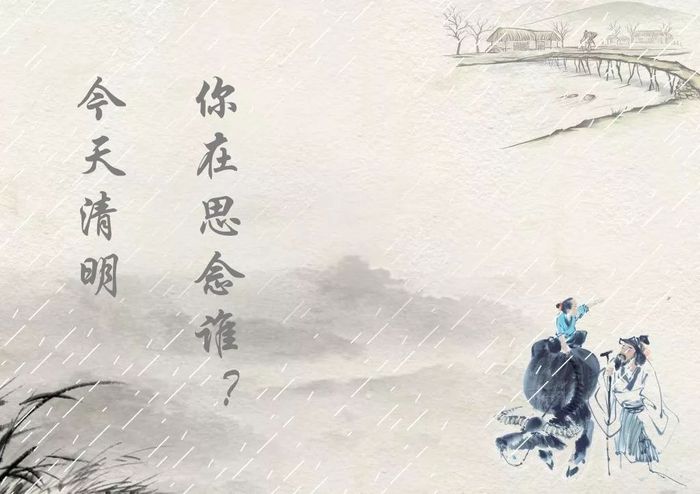 今天清明
你在思念谁？